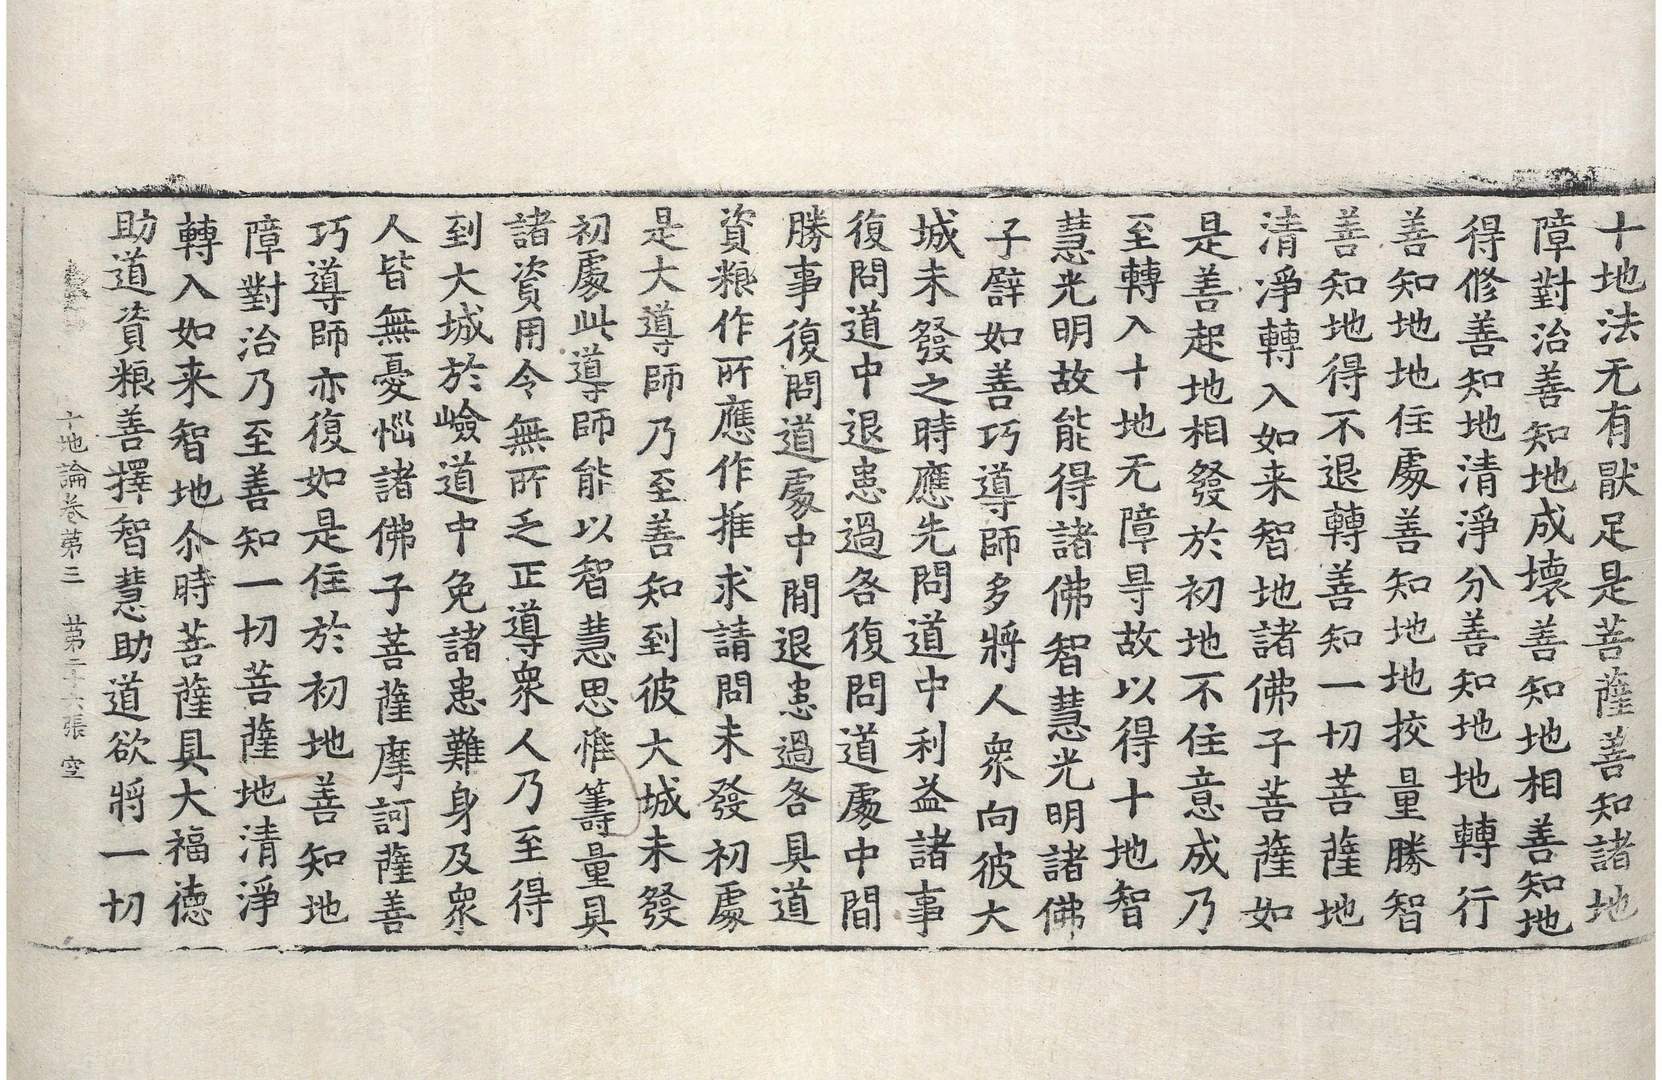 十地法无有猒足是菩薩善知諸地
障對治善知地成壞善知地相善知地
得修善知地清淨分善知地地轉行
善知地地住處善知地地挍量勝智
善知地得不退轉善知一切菩薩地
清淨轉入如来智地諸佛子菩薩如
是善起地相發於初地不住意成乃
至轉入十地无障㝵故以得十地智
慧光明故能得諸佛智慧光明諸佛
子譬如善巧導師多將人衆向彼大
城未發之時應先問道中利益諸事
復問道中退患過各復問道處中間
勝事復問道處中間退患過各具道
資粮作所應作推求請問未發初處
是大導師乃至善知到彼大城未發
初處此導師能以智慧思惟籌量具
諸資用令無所乏正導衆人乃至得
到大城於嶮道中免諸患難身及衆
人皆無憂惱諸佛子菩薩摩訶薩善
巧導師亦復如是住於初地善知地
障對治乃至善知一切菩薩地清淨
轉入如来智地尒時菩薩具大福德
助道資粮善擇智慧助道欲將一切
十地論卷第三 第二十六張 空